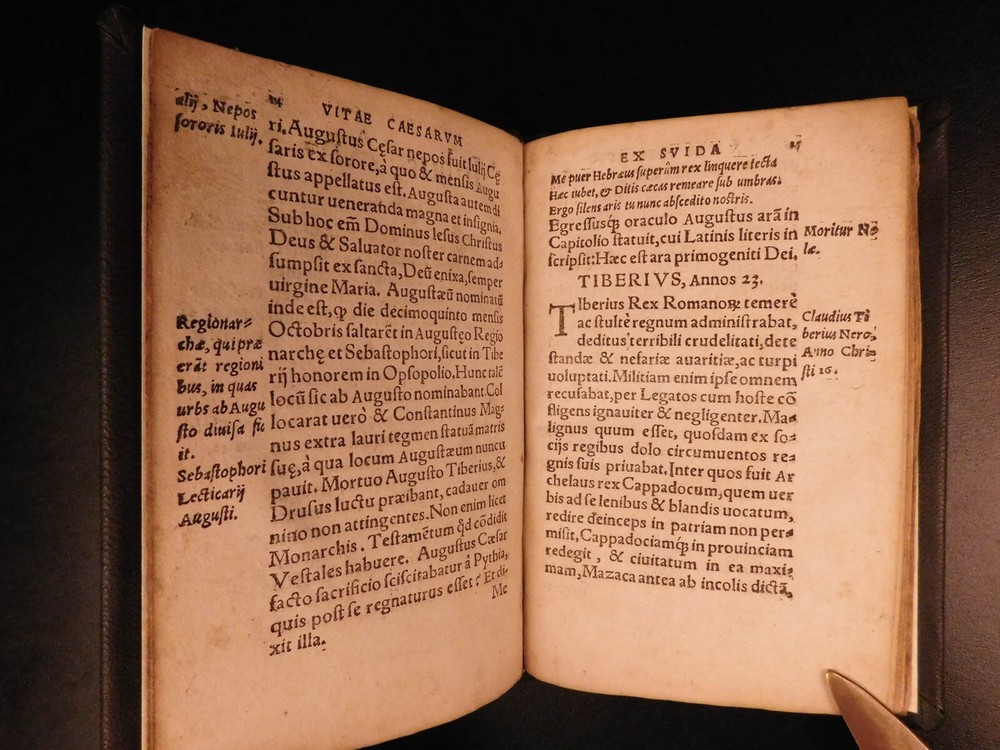 VITAE CAESARVM
alij, Nepos
sororis Iulij.
ri. Augustus Cęsar nepos fuit Iulij Cę
saris ex sorore, à quo & mensis Augu
stus appellatus est. Augusta autem di
cuntur ueneranda magna et insignia.
Sub hoc em̄ Dominus Iesus Christus
Deus & Saluator noster carnem ad-
sumpsit ex sancta, Deū enixa, semper
uirgine Maria. Augustæū nominatū
inde est, ꝙ die decimoquinto mensis
Octobris saltarēt in Augustęo Regio
narchę et Sebastophori, sicut in Tibe
rij honorem in Opsopolio. Hunc talē
locū sic ab Augusto nominabant. Col
locarat uerò & Constantinus Mag-
nus extra lauri tegmen statuā matris
suę, à qua locum Augustæum nuncu
pauit. Mortuo Augusto Tiberius, &
Drusus luctu præibant, cadauer om
nino non attingentes. Non enim licet
Monarchis. Testamētum qd cōdidit
Vestales habuere. Augustus Cæsar
facto sacrificio sciscitabatur à Pythia,
quis post se regnaturus esset? Et di-
xit illa.
Me
Regionar-
chæ, qui præ
erāt regioni
bus, in quas
urbs ab Augu
sto diuisa fu
it.
Sebastophori
Lecticarij
Augusti.
EX SVIDA
27
Me puer Hebræus superûm rex linquere tecta
Hæc iubet, & Ditis cæcas remeare sub umbras.
Ergo silens aris tu nunc abscedito nostris.
Egressusq; oraculo Augustus arā in
Capitolio statuit, cui Latinis literis in
scripsit: Hæc est ara primogeniti Dei.
Moritur No
læ.
TIBERIVS, Annos 23.
TIberius Rex Romanoꝝ temerè
ac stultè regnum administrabat,
deditus terribili crudelitati, dete
standæ & nefariæ auaritiæ, ac turpi
uoluptati. Militiam enim ipse omnem
recusabat, per Legatos cum hoste cō
fligens ignauiter & negligenter. Ma-
lignus quum esset, quosdam ex so-
cijs regibus dolo circumuentos re-
gnis suis priuabat. Inter quos fuit Ar
chelaus rex Cappadocum, quem uer
bis ad se lenibus & blandis uocatum,
redire deinceps in patriam non per-
misit, Cappadociamq; in prouinciam
redegit, & ciuitatum in ea maxi-
mam, Mazaca antea ab incolis dictā,
Claudius Ti
berius Nero,
Anno Chri-
sti 16.